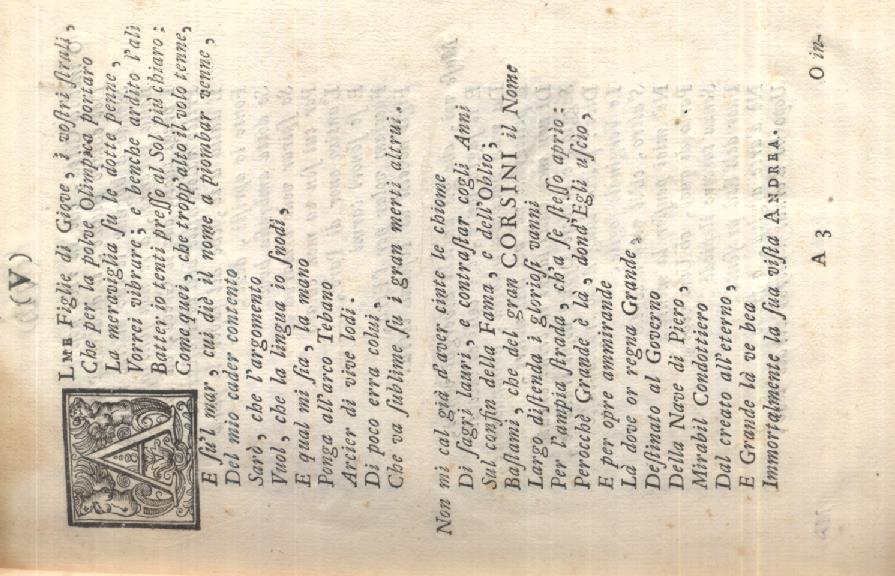 )(V)
ALME Figlie di Giove, i vostri strali,
Che per la polve Olimpica portaro
La meraviglia su le dotte penne,
Vorrei vibrare; e benche ardito l'ali
Batter io tenti presso al Sol più chiaro:
Come quei, che tropp'alto il volo tenne,
E su'l mar, cui diè il nome a piombar venne,
Del mio cader contento
Sarò, che l'argomento
Vuol, che la lingua io snodi,
E qual mi sia, la mano
Ponga all'arco Tebano
Arcier di vive lodi.
Di poco erra colui,
Che va sublime su i gran merti altrui.
Non mi cal già d'aver cinte le chiome
Di sagri lauri, e contrastar cogli Anni
Sul confin della Fama, e dell'Oblio;
Bastami, che del gran CORSINI il Nome
Largo distenda i gloriosi vanni
Per l'ampia strada, ch'a se stesso aprio:
Perocchè Grande è là, dond'Egli uscio,
E per opre ammirande
Là dove or regna Grande,
Destinato al Governo
Della Nave di Piero,
Mirabil Condottiero
Dal creato all'eterno,
E Grande là ve bea
Immortalmente la sua vista ANDREA.
A 3 O in-